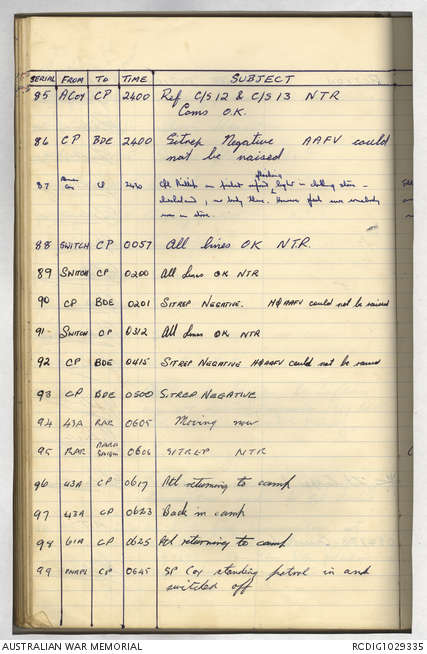 SERIAL FROM TO TIME SUBJECT
85 A Coy CP 2400 Ref C/S 12 & C/S 13 NTR
Coms O.K.
86 CP BDE 2400 Sitrep Negative AAFV could
not be raised
flashing
87 Coy CP light in clothing store -
, no body there. However
in store.
88 SWITCH CP 0057 All lines OK NTR.
89 SWITCH CP 0200 All Lines OK NTR
90 CP BDE 0201 SITREP NEGATIVE. HQ AAFV could not be raised
91 SWITCH CP 0312 All Lines OK NTR
92 CP BDE 0415 SITREP NEGATIVE HQ AAFV could not be raised
93 CP BDE 0500 SITREP NEGATIVE
94 43A RAR 0605 Moving now
95 RAR 0606 SITREP NTR
96 43A CP 0617 Ptl returning to camp
97 43A CP 0623 Back in camp
98 61A CP 0625 Ptl returning to camp
99 CP 0645 SP Coy standing patrol in and
switched off
AUSTRALIAN WAR MEMORIAL RCDIG1029335